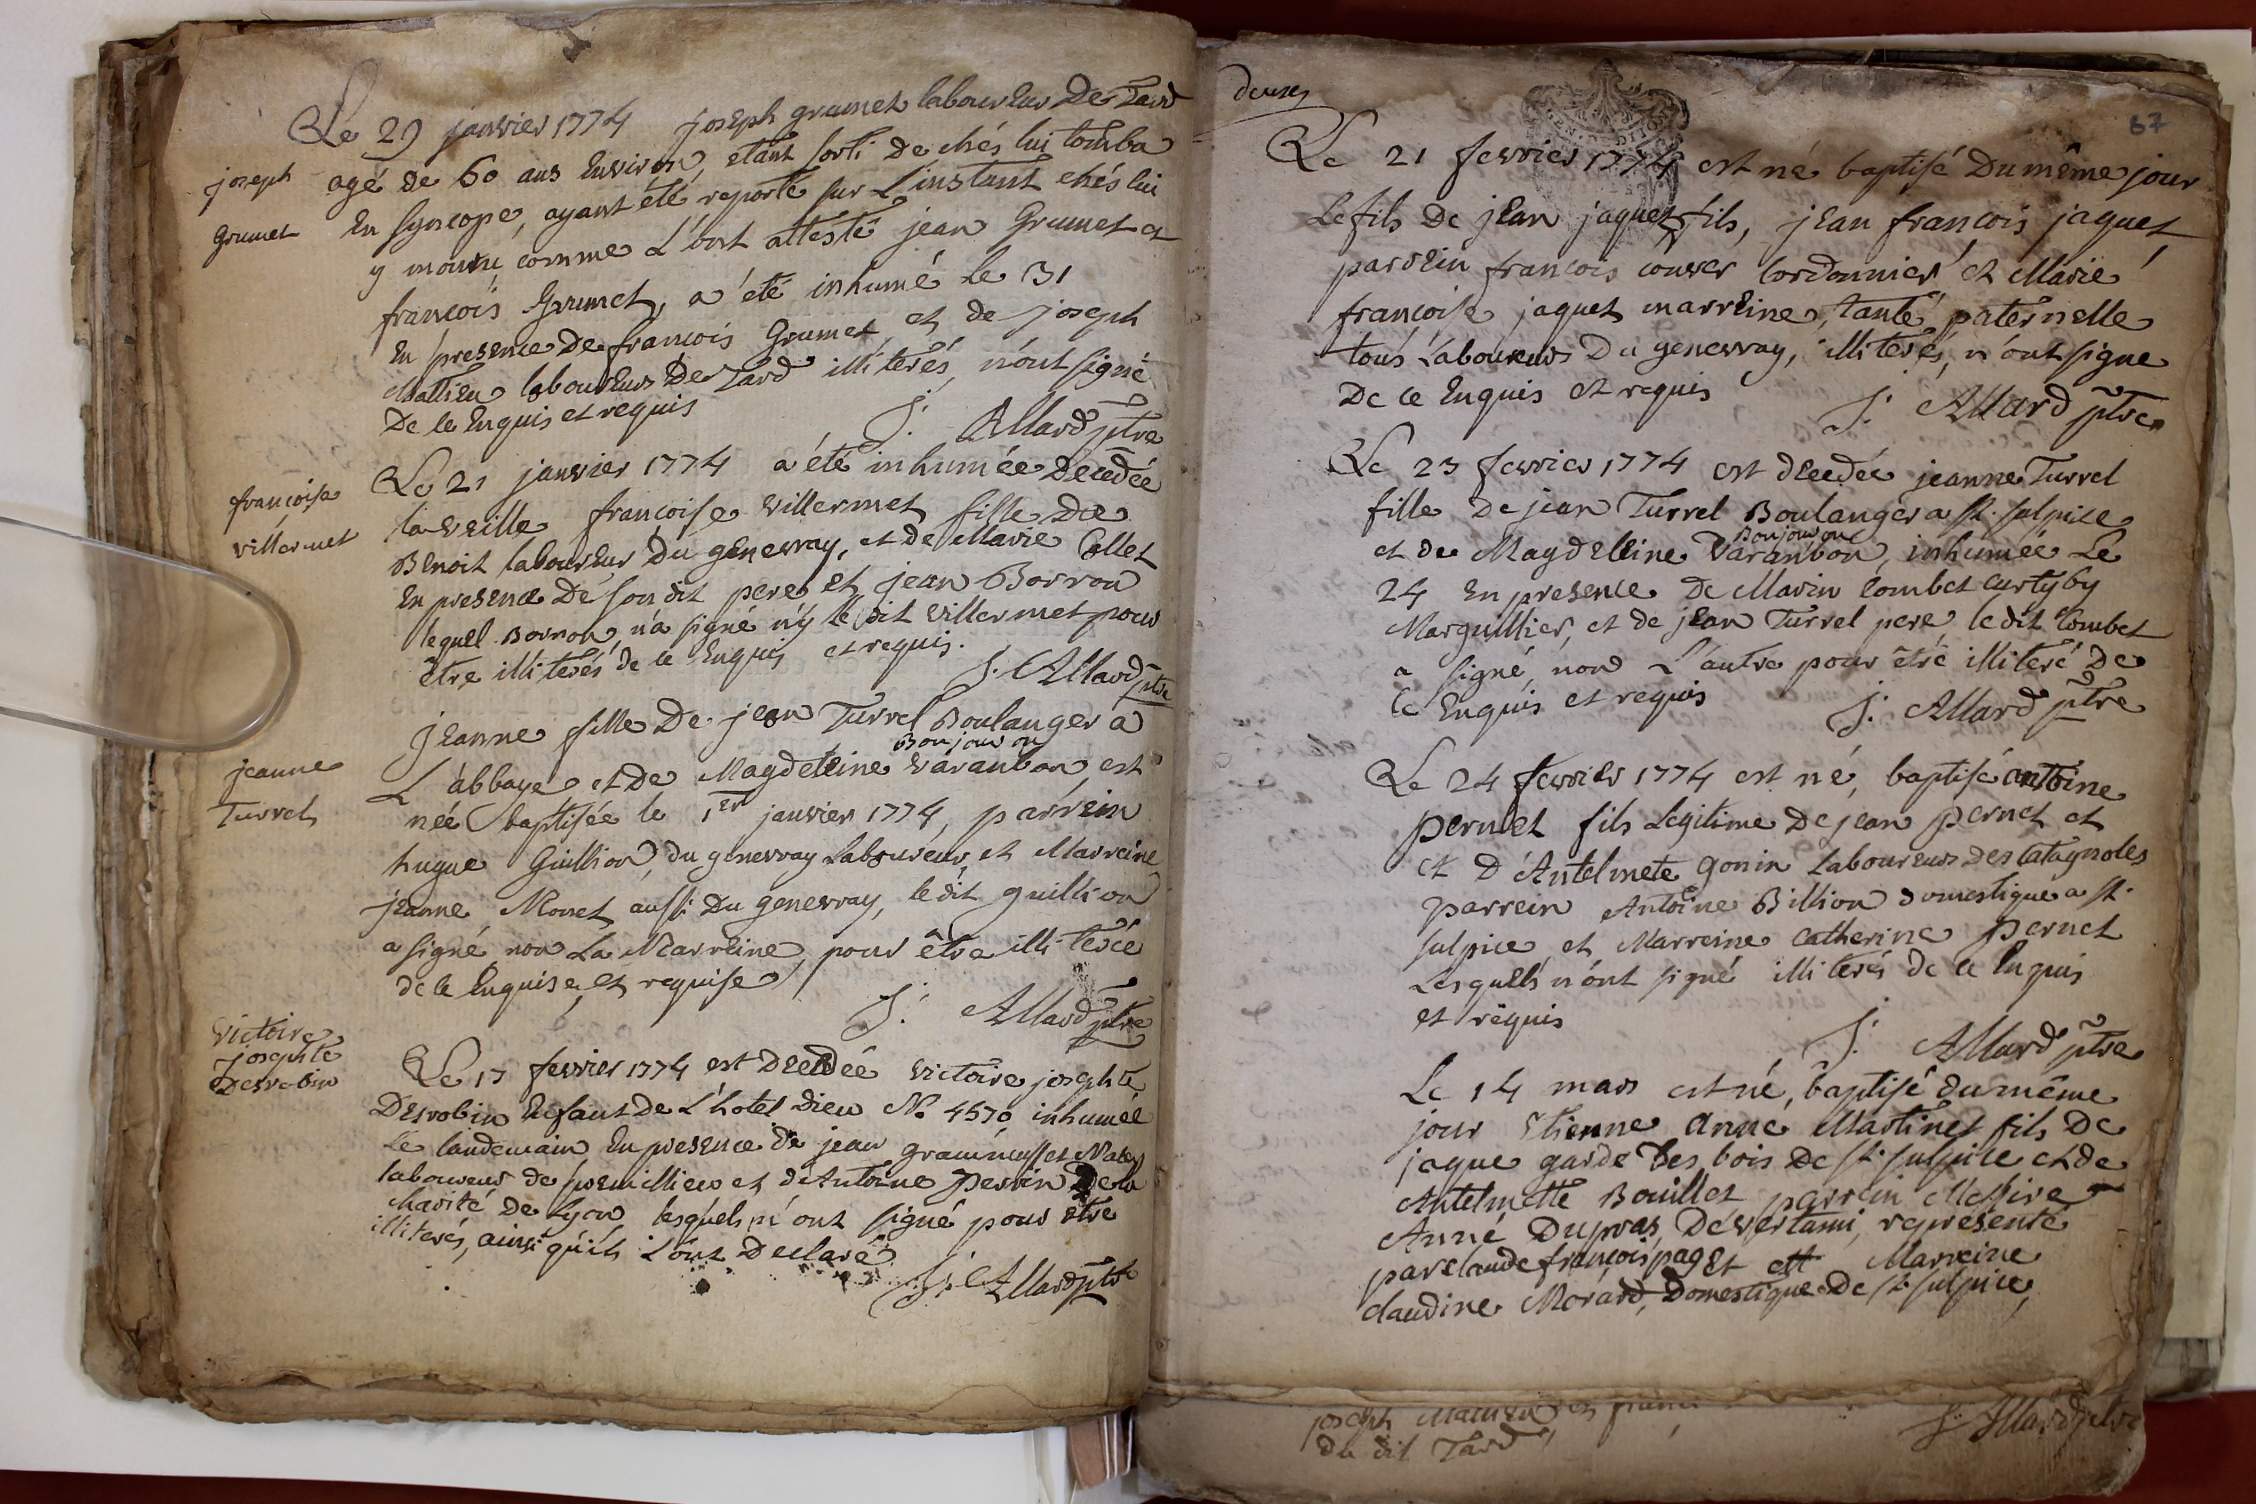 Le 29 janvier 1774 joseph grumet laboureur De Tard
agé de 60 ans Environ, etant sorti de chés lui tomba
En syncope, ayant été reporté sur L'instant chés lui
y mourut, comme L'ont attesté jean Grumet et
françois Grumet, a été inhumé le 31
En presence De francois Grumet et de joseph
Mattieu laboureurs De Tard illiterés, n'ont signé
De ce Enquis et requis
J. Allard ptre
joseph
Grumet
Le 21 janvier 1774 a été inhumée Decedée
la veille françoise villermet fille de
Benoit laboureur Du genevray, et de Marie Collet
En presence De son dit pere et jean Borron
lequel Borron, n'a signé n'y le dit villermet pour
être illiterés de ce Enquis et requis.
J. Allard ptre
françoise
villermet
Jeanne fille De jean Turrel Boulanger a
Bonjour ou
L'abbaye et de Magdeleine varanbon est
née baptisée le 1er janvier 1774, parrein
hugue Guillion, du genevray Laboureur, et Marreine
jeanne Monet aussi Du genevray, le dit guillion
a signé non La Marreine, pour être illiterée
de ce Enquise et requise
J. Allard ptre
jeanne
Turrel
Le 17 fevrier 1774 est Decedée victoire josephte
Desrobin Enfant de L'hotel Dieu No 4570 inhumée
Le landemain En presence de jean
laboureur de premillieu et d'Antoine Perrin De la
Charité de Lyon lesquels n'ont signé pour être
illiterés, ainsi qu'ils L'ont Declaré
J. Allard ptre
victoire
josephte
Desrobin
deuxe
67
Le 21 fevrier 1774 est né baptisé Du même jour
Le fils De jean jaquet fils, jean françois jaquet
parrein françois couver Cordonnier et Marie
françoise jaquet marreine, tante paternelle
tous Laboureurs Du genevray, illiterés, n'ont signe
De ce Enquis et requis
J. Allard ptre
Le 23 fevrier 1774 est decedée jeanne Turrel
fille De jean Turrel Boulanger a st. sulpice
Bonjour ou
et de Magdelleine Varanbon, inhumée Le
24 En presence De Marin Combet curtyby
Marguillier, et de jean Turrel pere, le dit Combet
a signé, non L'autre pour être illiteré De
ce Enquis et requis
J. Allard ptre
Le 24 fevrier 1774 est né, baptisé antoine
pernet fils Legitime De jean pernet et
et D'Antelmete gonin Laboureurs Des Catagnoles
parrein Antoine Billion domestique a st.
sulpice et Marreine Catherine pernet
Lesquells n'ont signé illiterés De ce Enquis
et requis
J. Allard ptre
Le 14 mars est né, baptisé du même
jour Etienne anne Martinet fils De
jaque garde Des bois De st. sulpice et de
Antelmette Bouillet parrein Messire
Anne Dupras, De vertami, representé
par claude françois paget et Marreine
claudine Morard, Domestique De st. sulpice,
joseph Mattieu et
du dit Tard
J. Allard ptre